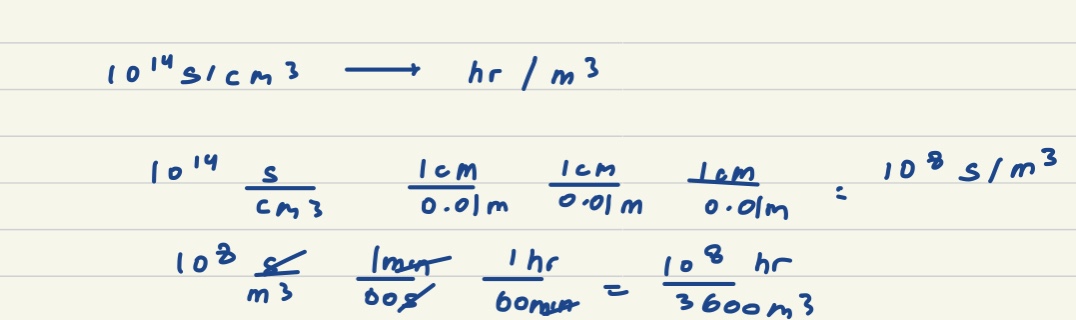 10^14 s/cm^3 → hr / m^3
10^14 s/cm^3 1cm/0.01m 1cm/0.01m 1cm/0.01m = 10^8 s/m^3
10^8 s/m^3 1min/60s 1hr/60min = 10^8 hr/3600m^3